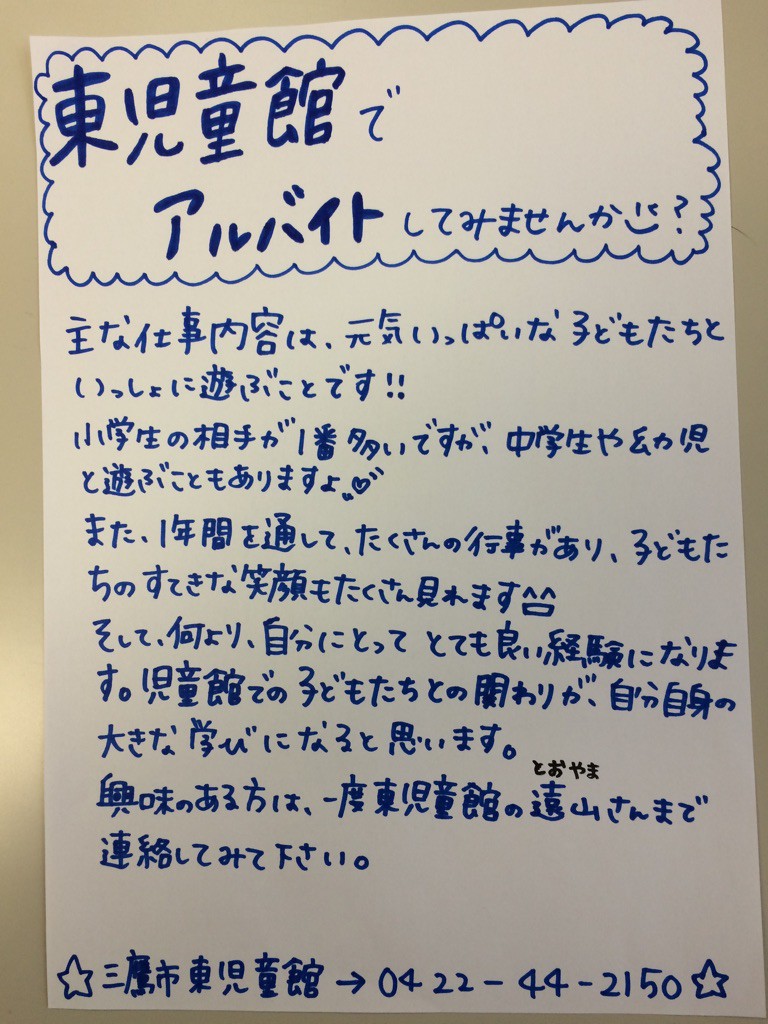 東児童館で
アルバイトしてみませんか?
主な仕事内容は、元気いっぱいな子どもたちと
いっしょに遊ぶことです!!
小学生の相手が1番多いですが、中学生や幼児
と遊ぶこともありますよ♡
また、1年間を通して、たくさんの行事があり、子どもた
ちのすてきな笑顔もたくさん見れます^^
そして、何より、自分にとってとても良い経験になりま
す。児童館での子どもたちとの関わりが、自分自身の
大きな学びになると思います。
とおやま
興味のある方は、一度東児童館の遠山さんまで
連絡してみて下さい。
☆三鷹市東児童館→0422-44-2150☆